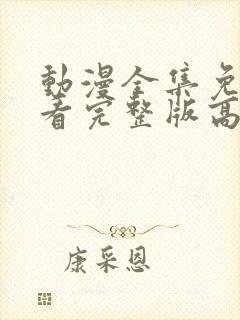 動漫全集免
看完整版高
康采恩